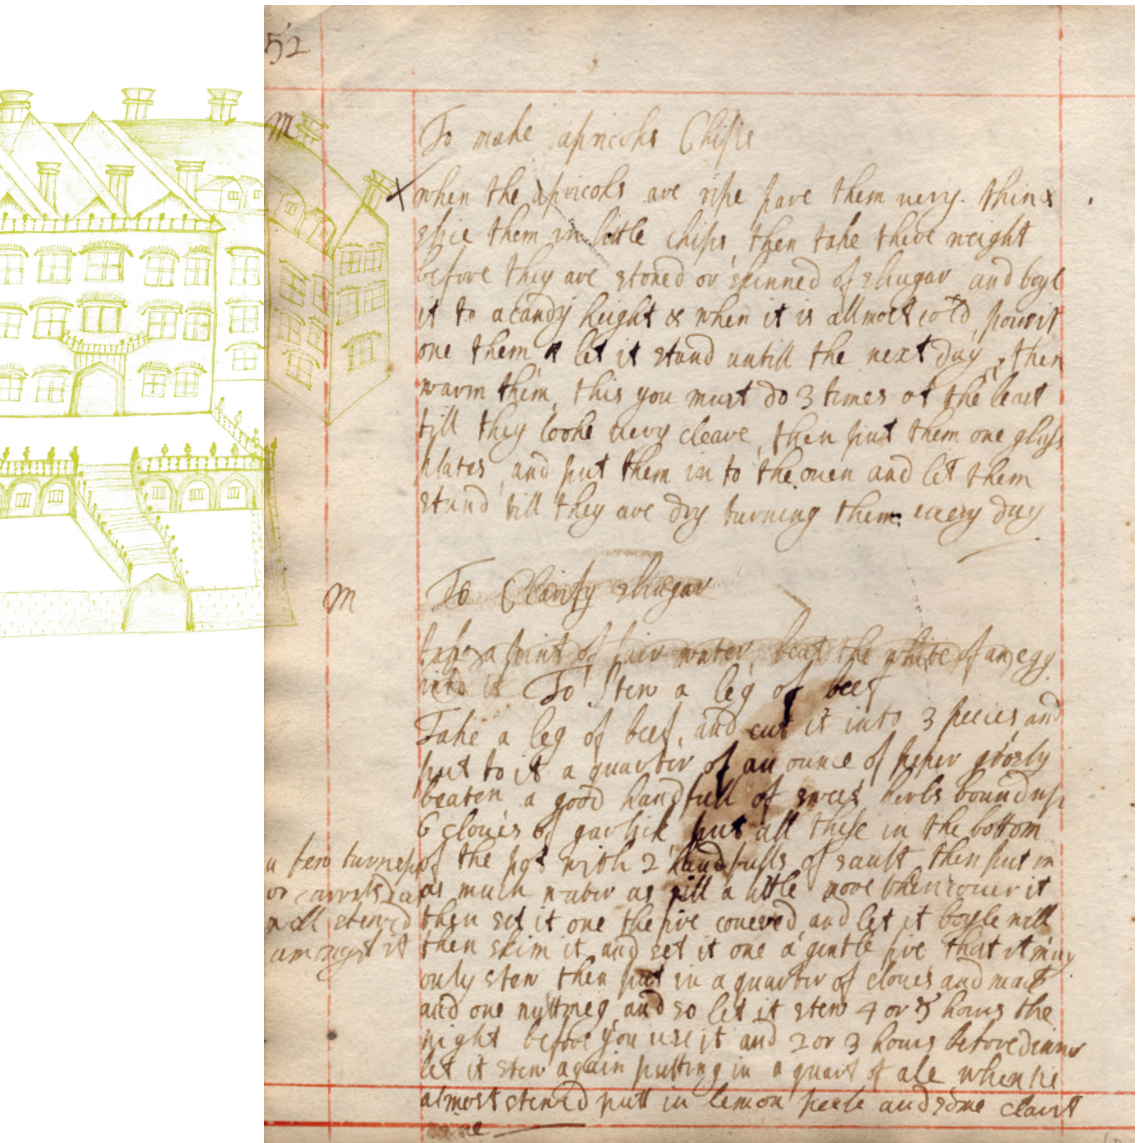 52
m
To make apricoks Chips
x when the apricoks are ripe pare them very thin &
slice them in little chips, then take there weight
before they are stoned or skinned of shugar and boyl
it to a candy height & when it is allmost cold, pour it
one them & let it stand untill the next day, then
warm them, this you must do 3 times at the least
till they looke very cleare, then put them one glass
plates, and put them in to the oven and let them
stand till they are dry turning them every day
m
To Clarify shugar
take a pint of fair water, beat the white of an egg
into it To Stew a leg of beef
Take a leg of beef, and cut it into 3 peeces and
put to it a quarter of an ounce of peper grosly
beaten, a good handfull of sweet herbs bound up
6 cloves of garlick put all these in the bottom
of the pot with 2 handfulls of sault, then put in
as much water as fill a little more then cover it
then set it one the fire covered, and let it boyle well
then skim it, and set it one a gentle fire that it may
only stew then put in a quarter of cloves and mace
and one nuttmeg, and so let it stew 4 or 5 hours the
night before you use it and 2 or 3 hours before dinner
let it stew again putting in a quart of ale when tis
almost stewed putt in lemon peele and some claret
a few turneps
or carrots
well stewed
amongst it